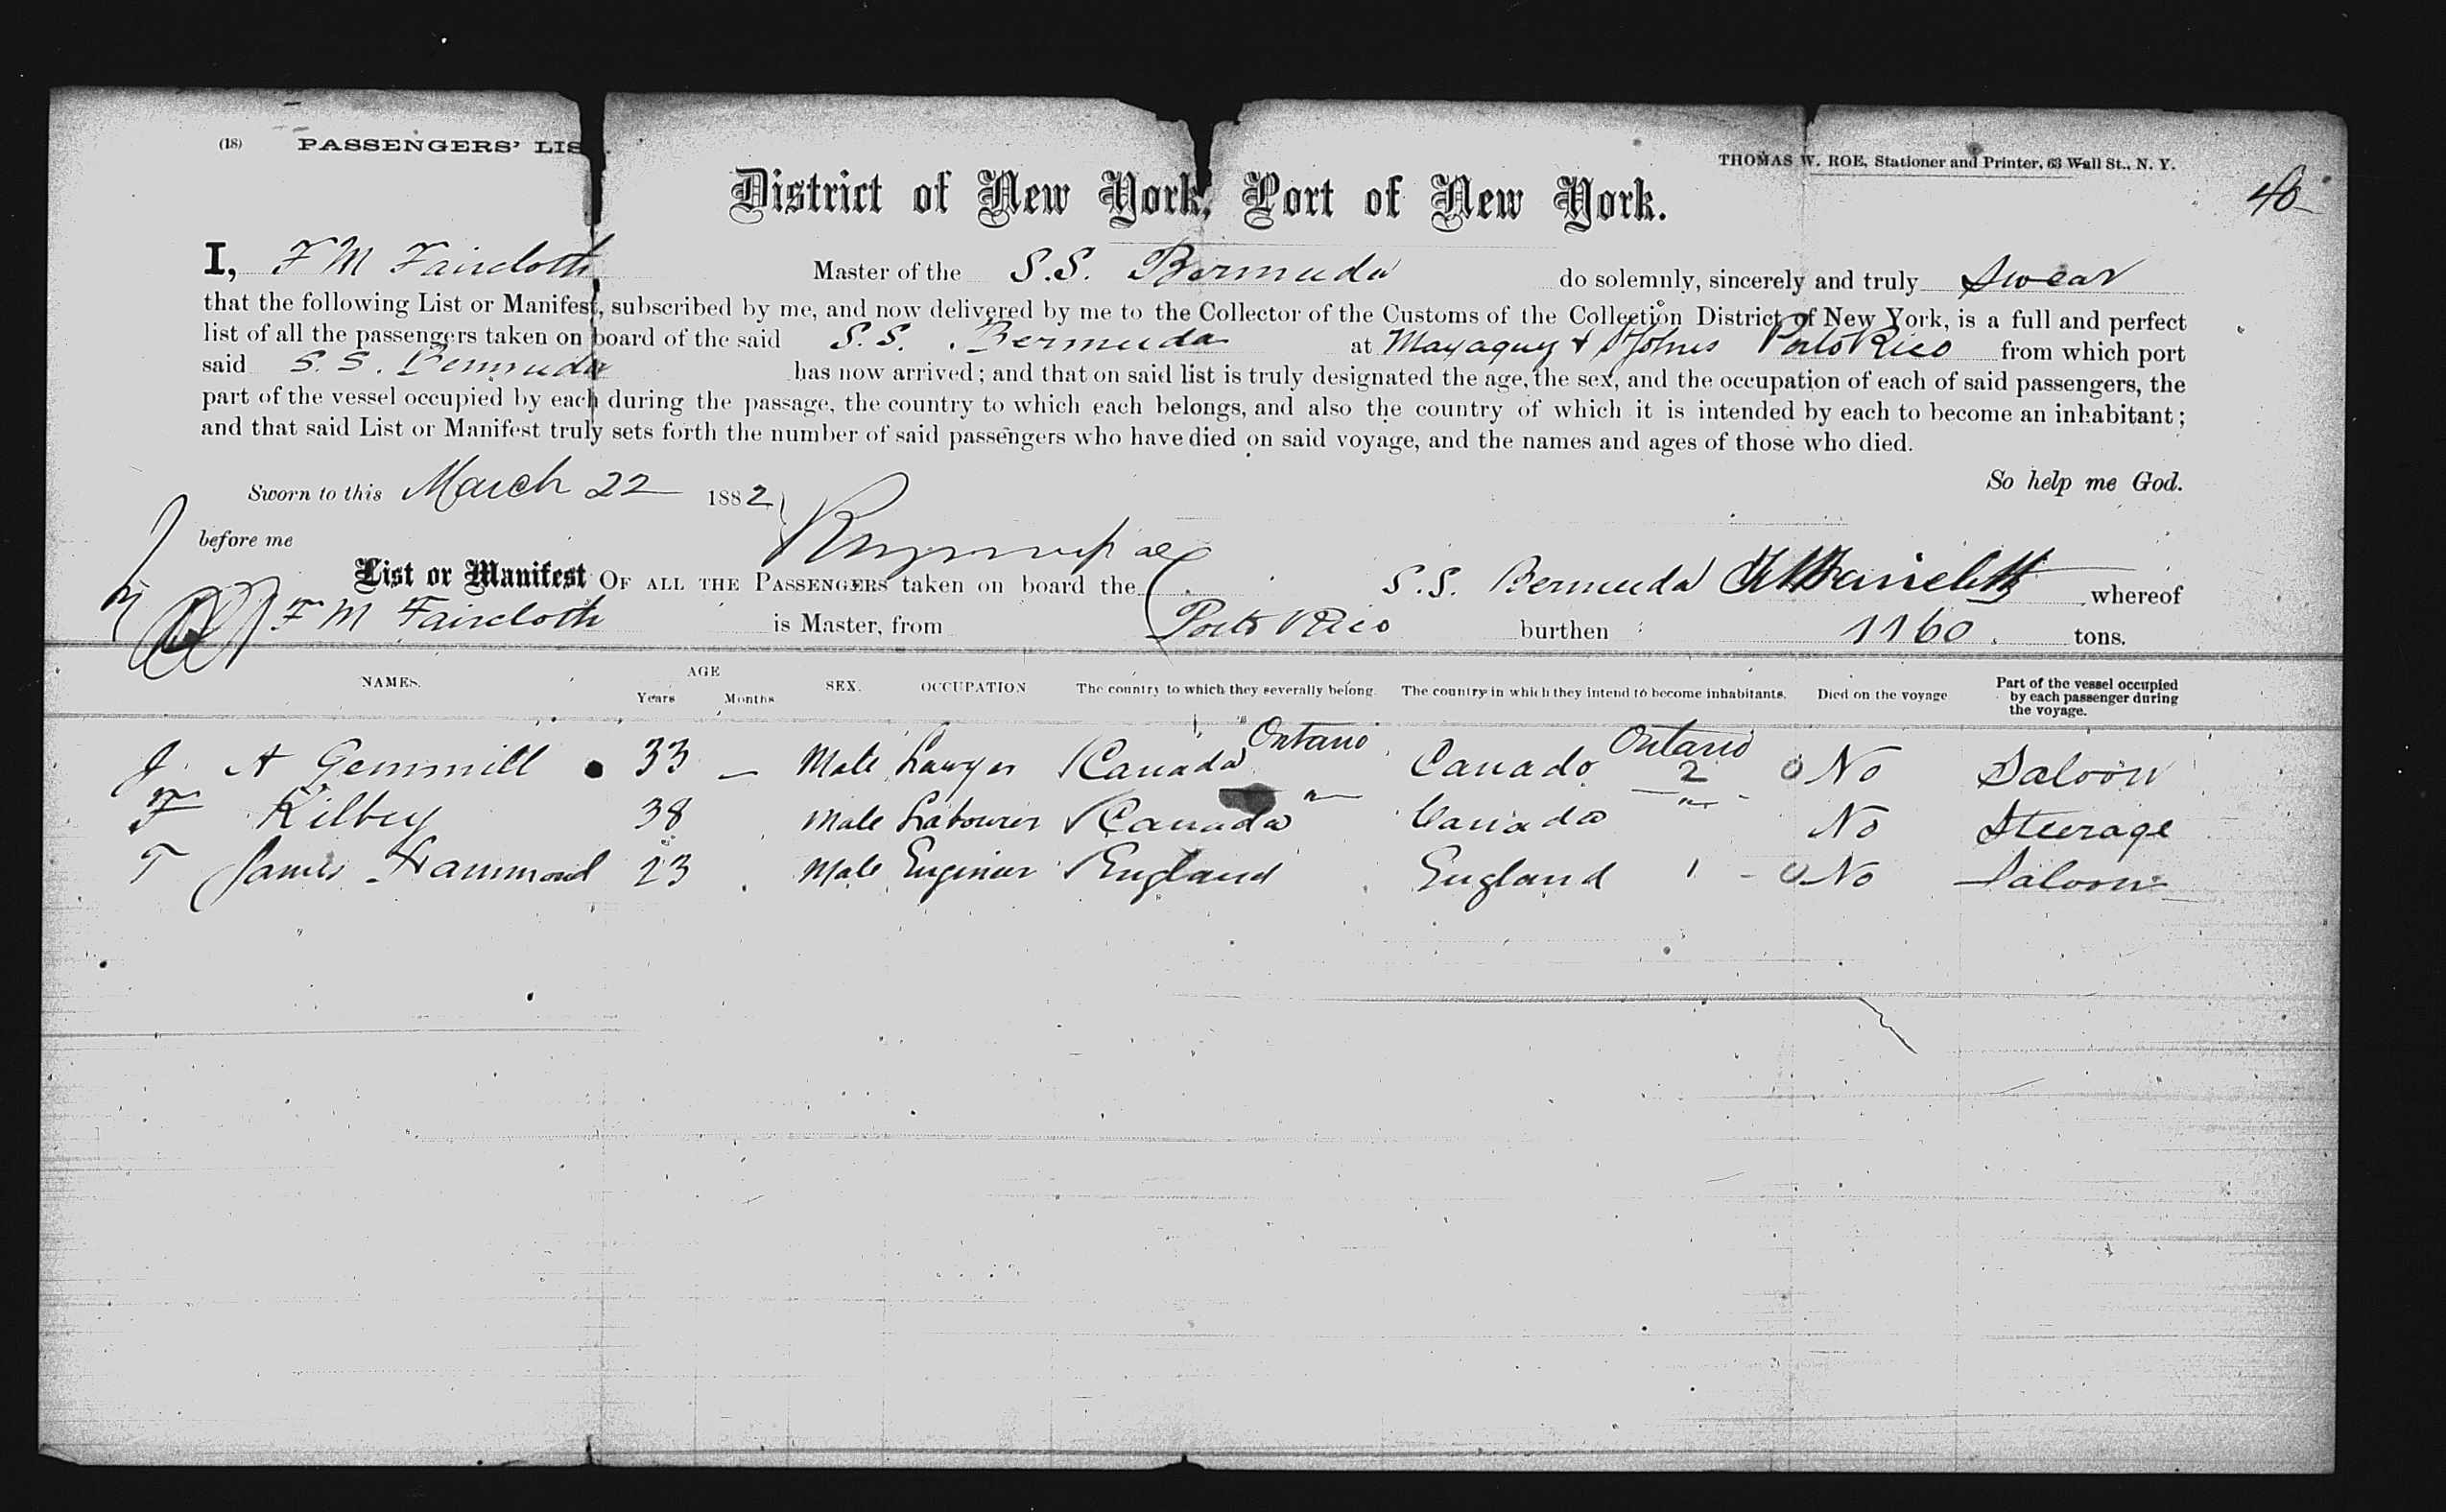 (18) PASSENGERS' LIS
THOMAS W. ROE, Stationer and Printer, 63 Wall St., N. Y.
District of New York, Port of New York.
I, F M Faircloth Master of the S.S. Bermuda do solemnly, sincerely and truly Swear
that the following List or Manifest, subscribed by me, and now delivered by me to the Collector of the Customs of the Collection District of New York, is a full and perfect
list of all the passengers taken on board of the said S.S. Bermuda at Mayaguez & St Johns Porto Rico from which port
said S.S. Bermuda has now arrived; and that on said list is truly designated the age, the sex, and the occupation of each of said passengers, the
part of the vessel occupied by each during the passage, the country to which each belongs, and also the country of which it is intended by each to become an inhabitant;
and that said List or Manifest truly sets forth the number of said passengers who have died on said voyage, and the names and ages of those who died.
So help me God.
Sworn to this March 22 1882
before me
List or Manifest OF ALL THE PASSENGERS taken on board the S.S. Bermuda F M Faircloth whereof
F M Faircloth is Master, from Porto Rico burthen 1160 tons.
NAMES. AGE Years Months SEX. OCCUPATION The country to which they severally belong. The country in which they intend to become inhabitants. Died on the voyage Part of the vessel occupied by each passenger during the voyage.
J. A Gemmill 33 — Male Lawyer Canada Ontario Canada Ontario 2 0 No Saloon
F Kilbey 38 Male Labourer Canada " Canada " No Steerage
T James Hammond 23 Male Engineer England England 1 - 0 No Saloon